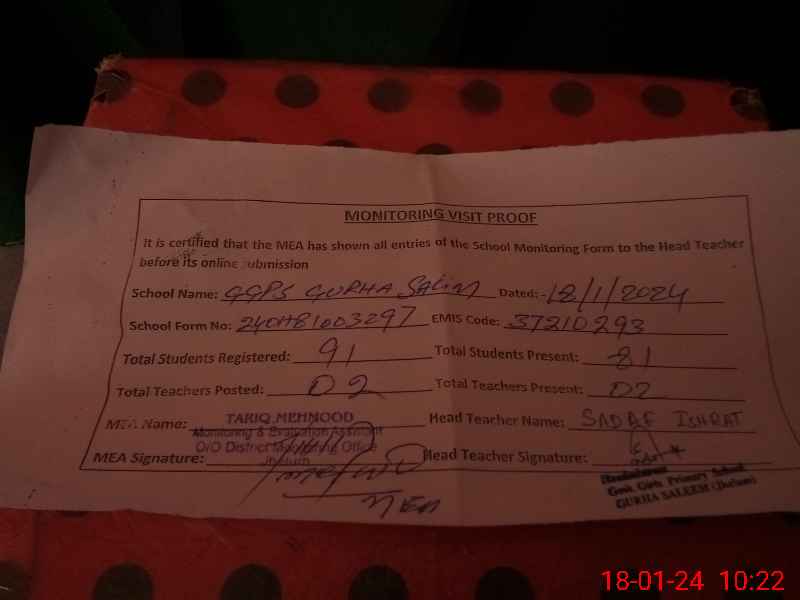 MONITORING VISIT PROOF
It is certified that the MEA has shown all entries of the School Monitoring Form to the Head Teacher
before its online submission
School Name: GGPS GURHA SALIM Dated:- 18/1/2024
School Form No: 240481003297 EMIS Code: 37210293
Total Students Registered: 91 Total Students Present: 81
Total Teachers Posted: 02 Total Teachers Present: 02
MEA Name: TARIQ MEHMOOD Head Teacher Name: SADAF ISHRAT
Monitoring & Evaluation Assistant
O/O District Monitoring Office
Jhelum
MEA Signature: Head Teacher Signature:
MEA
Headmistress
Govt. Girls Primary School
GURHA SALEEM (Jhelum)
18-01-24 10:22